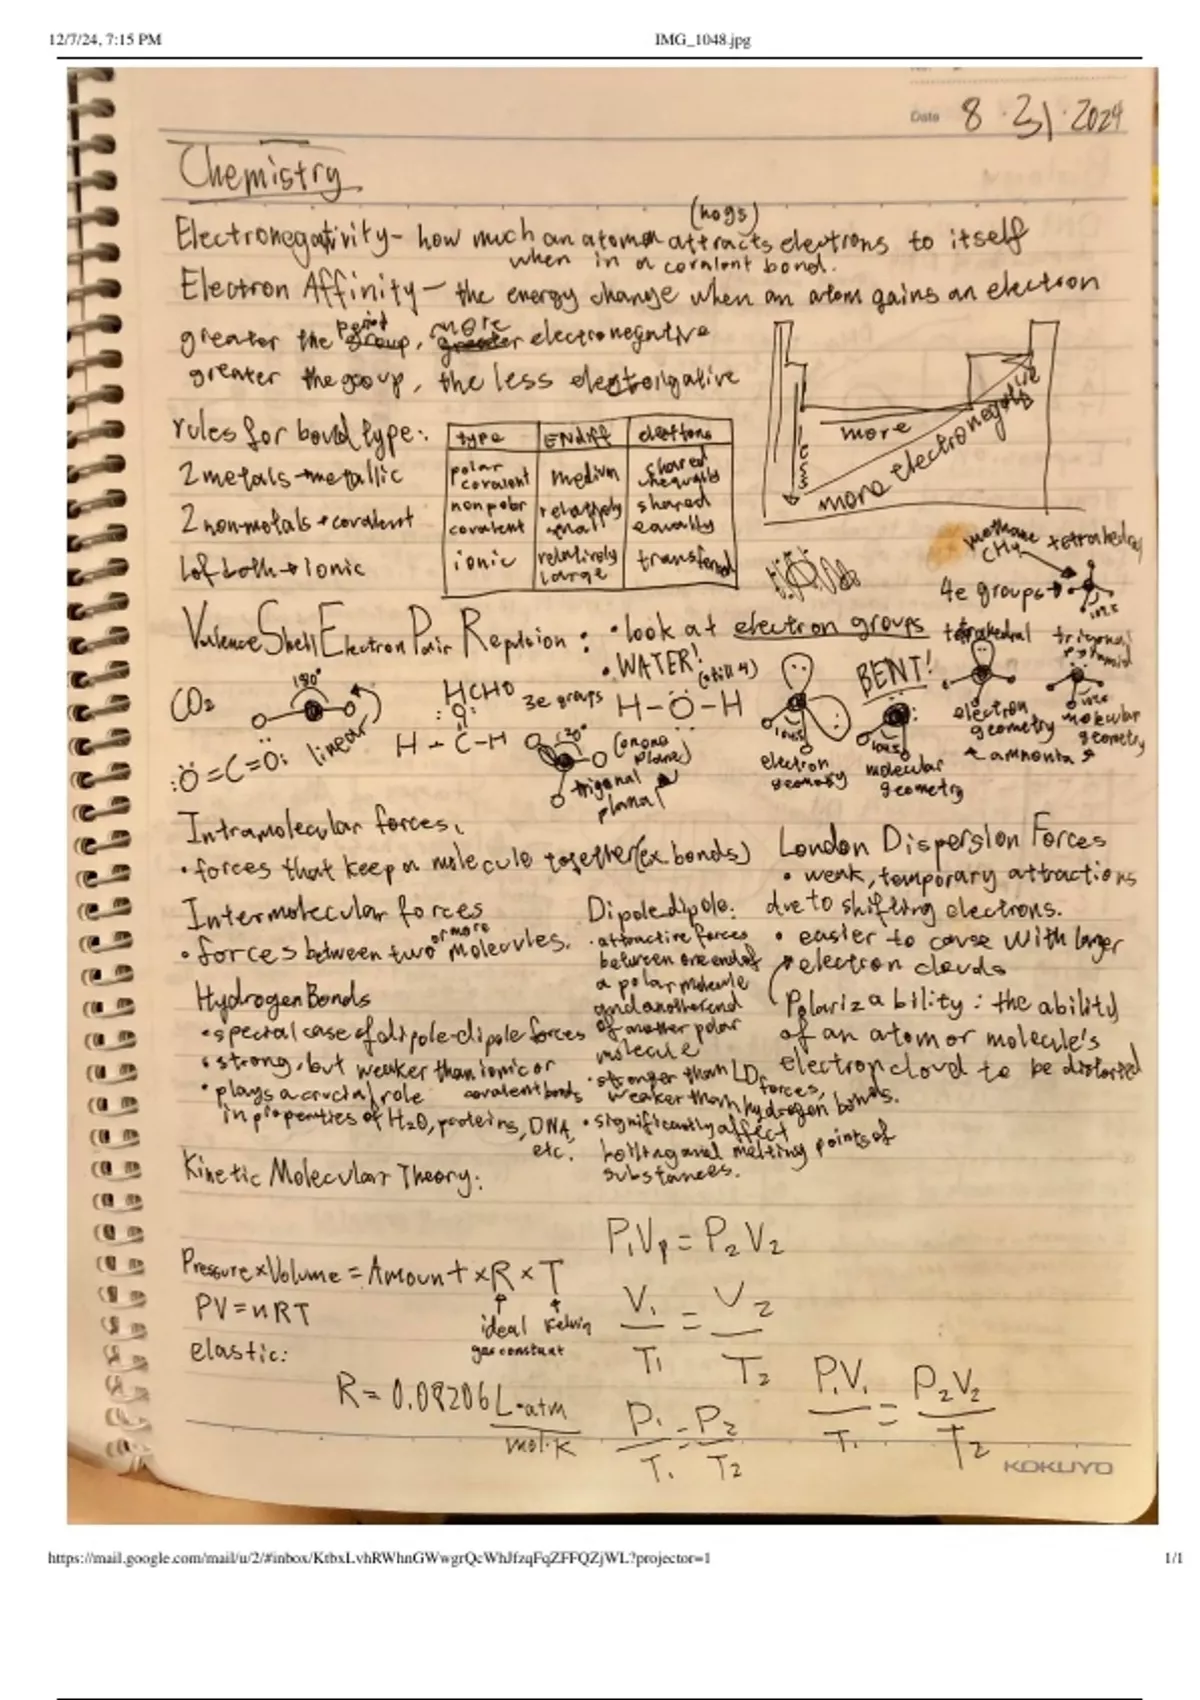 12/7/24, 7:15 PM
IMG_1048.jpg
Date 8 · 31 · 2024
Chemistry
(hogs)
Electronegativity - how much an atom attracts electrons to itself
when in a covalent bond.
Electron Affinity - the energy change when an atom gains an electron
greater the period, more electronegative
greater the group, the less electronegative
more
less
more electronegative
rules for bond type:
2 metals → metallic
2 non-metals → covalent
1 of both → ionic
type ENdiff electrons
polar covalent medium shared unequally
nonpolar covalent relatively small shared equally
ionic relatively large transferred
methane CH4 tetrahedral
4e groups
109.5
Valence Shell Electron Pair Repulsion: • look at electron groups
• WATER! (still 4)
BENT!
tetrahedral
trigonal pyramid
CO2 180°
linear
:Ö=C=Ö:
HCHO 3e groups
:O:
H-C-H
120°
(on one plane)
trigonal planar
H-Ö-H
104.5
electron geometry
104.5
molecular geometry
electron geometry
molecular geometry
ammonia
Intramolecular forces,
• forces that keep a molecule together (ex. bonds)
Intermolecular forces
• forces between two or more molecules.
Hydrogen Bonds
• special case of dipole-dipole forces
• strong, but weaker than ionic or
covalent bonds
• plays a crucial role
in properties of H2O, proteins, DNA,
etc.
Dipole dipole:
• attractive forces
between one end of
a polar molecule
and another end
of another polar
molecule
• stronger than LD forces,
weaker than hydrogen bonds.
• significantly affect
boiling and melting points of
substances.
London Dispersion Forces
• weak, temporary attractions
due to shifting electrons.
• easier to cause with larger
electron clouds
Polarizability: the ability
of an atom or molecule's
electron cloud to be distorted
Kinetic Molecular Theory:
Pressure × Volume = Amount × R × T
ideal gas constant
Kelvin
PV = nRT
elastic:
R = 0.08206 L·atm
mol·K
P1V1 = P2V2
V1 = V2
T1 T2
P1 = P2
T1 T2
P1V1 = P2V2
T1 T2
KOKUYO
https://mail.google.com/mail/u/2/#inbox/KtbxLvhRWhnGWwgrQcWhJfzqFqZFFQZjWL?projector=1
1/1